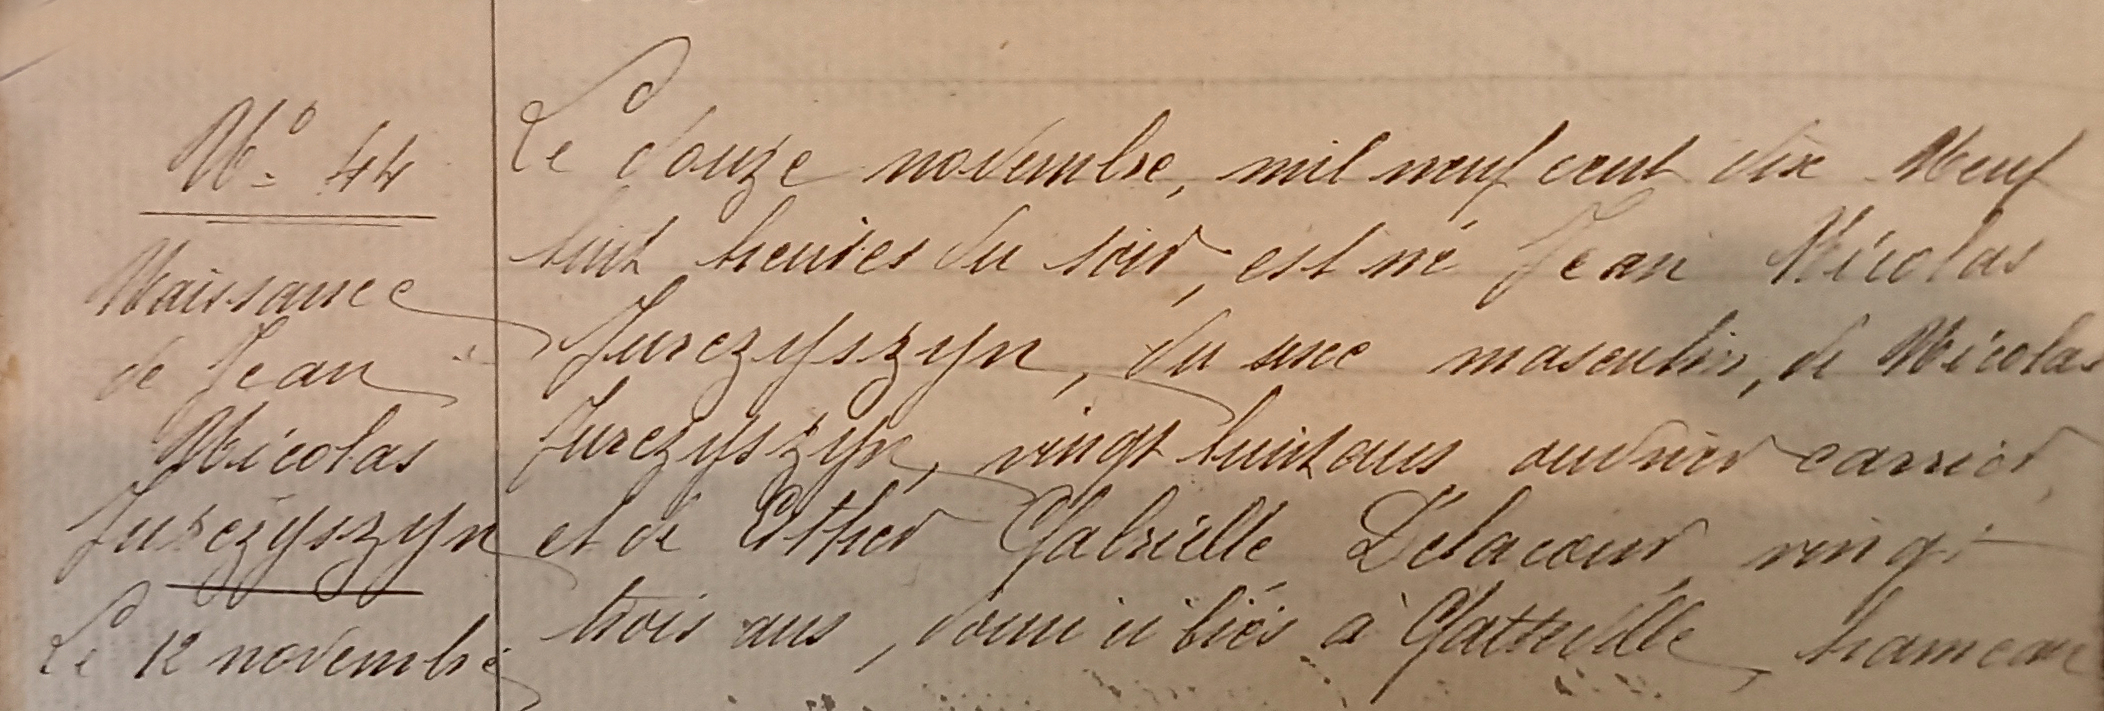 N° 44
Naissance
de Jean
Nicolas
Jurczyszyn
Le 12 novembre
Le douze novembre, mil neuf cent dix Neuf
huit heures du soir, est né Jean Nicolas
Jurczyszyn, du sexe masculin, de Nicolas
Jurczyszyn, vingt huit ans ouvrier carrier,
et de Esther Gabrielle Delacour, vingt
trois ans, domiciliés à Gatteville, hameau